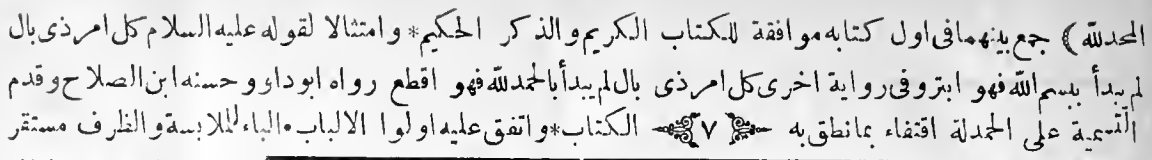 الحمدلله ﴾ جمع بينهما فى اول كتابه موافقة للكتاب الكريم والذكر الحكيم * وامتثالا لقوله عليه السلام كل امر ذى بال
لم يبدأ ببسم الله فهو ابتر وفى رواية اخرى كل امر ذى بال لم يبدأ بالحمدلله فهو اقطع رواه ابوداود وحسنه ابن الصلاح وقدم
التسمية على الحمدلة اقتفاء بمانطق به ﴿ ٧ ﴾ الكتاب * واتفق عليه اولوا الالباب * الباء للملابسة والظرف مستقر